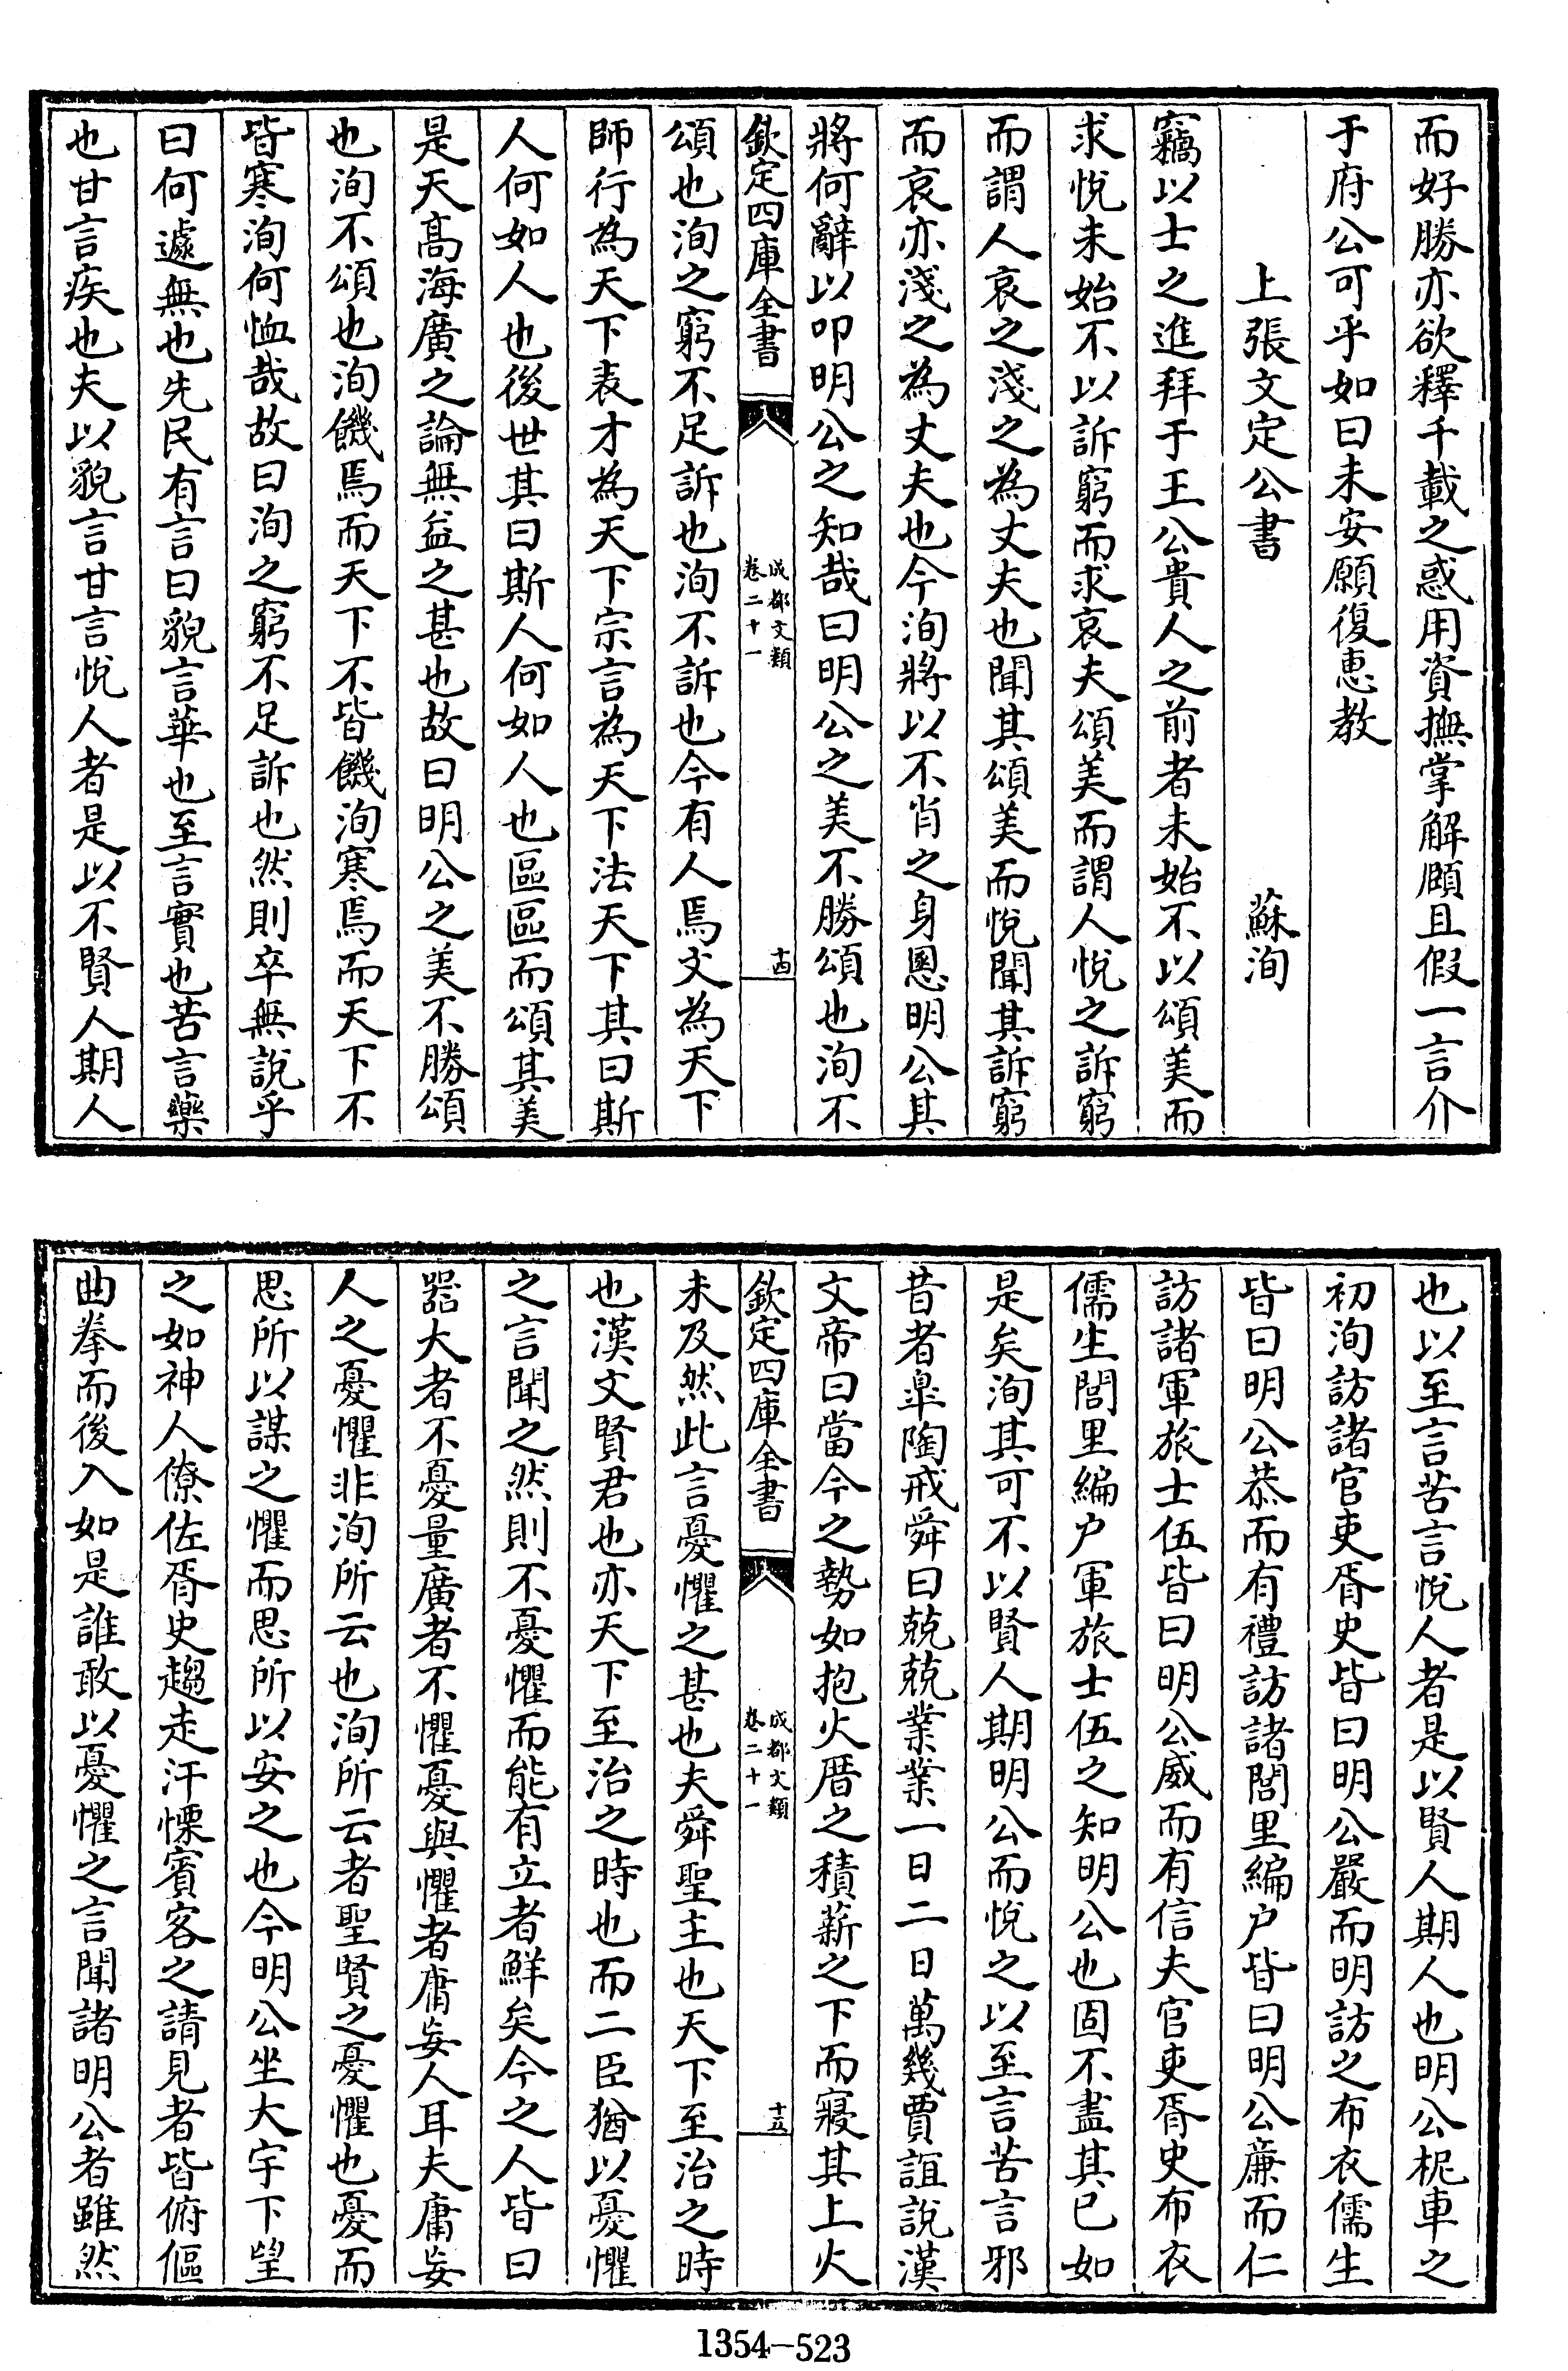 而好勝亦欲釋千載之惑用資撫掌解頤且假一言介
于府公可乎如曰未安願復惠教
上張文定公書 蘇洵
竊以士之進拜于王公貴人之前者未始不以頌美而
求悅未始不以訴窮而求哀夫頌美而謂人悅之訴窮
而謂人哀之淺之為丈夫也聞其頌美而悅聞其訴窮
而哀亦淺之為丈夫也今洵將以不肖之身恩明公其
將何辭以叩明公之知哉曰明公之美不勝頌也洵不
欽定四庫全書 成都文類 卷二十一 十四
頌也洵之窮不足訴也洵不訴也今有人焉文為天下
師行為天下表才為天下宗言為天下法天下其曰斯
人何如人也後世其曰斯人何如人也區區而頌其美
是天高海廣之論無益之甚也故曰明公之美不勝頌
也洵不頌也洵饑焉而天下不皆饑洵寒焉而天下不
皆寒洵何恤哉故曰洵之窮不足訴也然則卒無說乎
曰何遽無也先民有言曰貌言華也至言實也苦言藥
也甘言疾也夫以貌言甘言悅人者是以不賢人期人
也以至言苦言悅人者是以賢人期人也明公柅車之
初洵訪諸官吏胥史皆曰明公嚴而明訪之布衣儒生
皆曰明公恭而有禮訪諸閭里編户皆曰明公廉而仁
訪諸軍旅士伍皆曰明公威而有信夫官吏胥史布衣
儒生閭里編户軍旅士伍之知明公也固不盡其已如
是矣洵其可不以賢人期明公而悅之以至言苦言邪
昔者臯陶戒舜曰兢兢業業一日二日萬幾賈誼說漢
文帝曰當今之勢如抱火厝之積薪之下而寢其上火
欽定四庫全書 成都文類 卷二十一 十五
未及然此言憂懼之甚也夫舜聖主也天下至治之時
也漢文賢君也亦天下至治之時也而二臣猶以憂懼
之言聞之然則不憂懼而能有立者鮮矣今之人皆曰
器大者不憂量廣者不懼憂與懼者庸妄人耳夫庸妄
人之憂懼非洵所云也洵所云者聖賢之憂懼也憂而
思所以謀之懼而思所以安之也今明公坐大宇下望
之如神人僚佐胥史趨走汗慄賓客之請見者皆俯傴
曲拳而後入如是誰敢以憂懼之言聞諸明公者雖然
1354-523